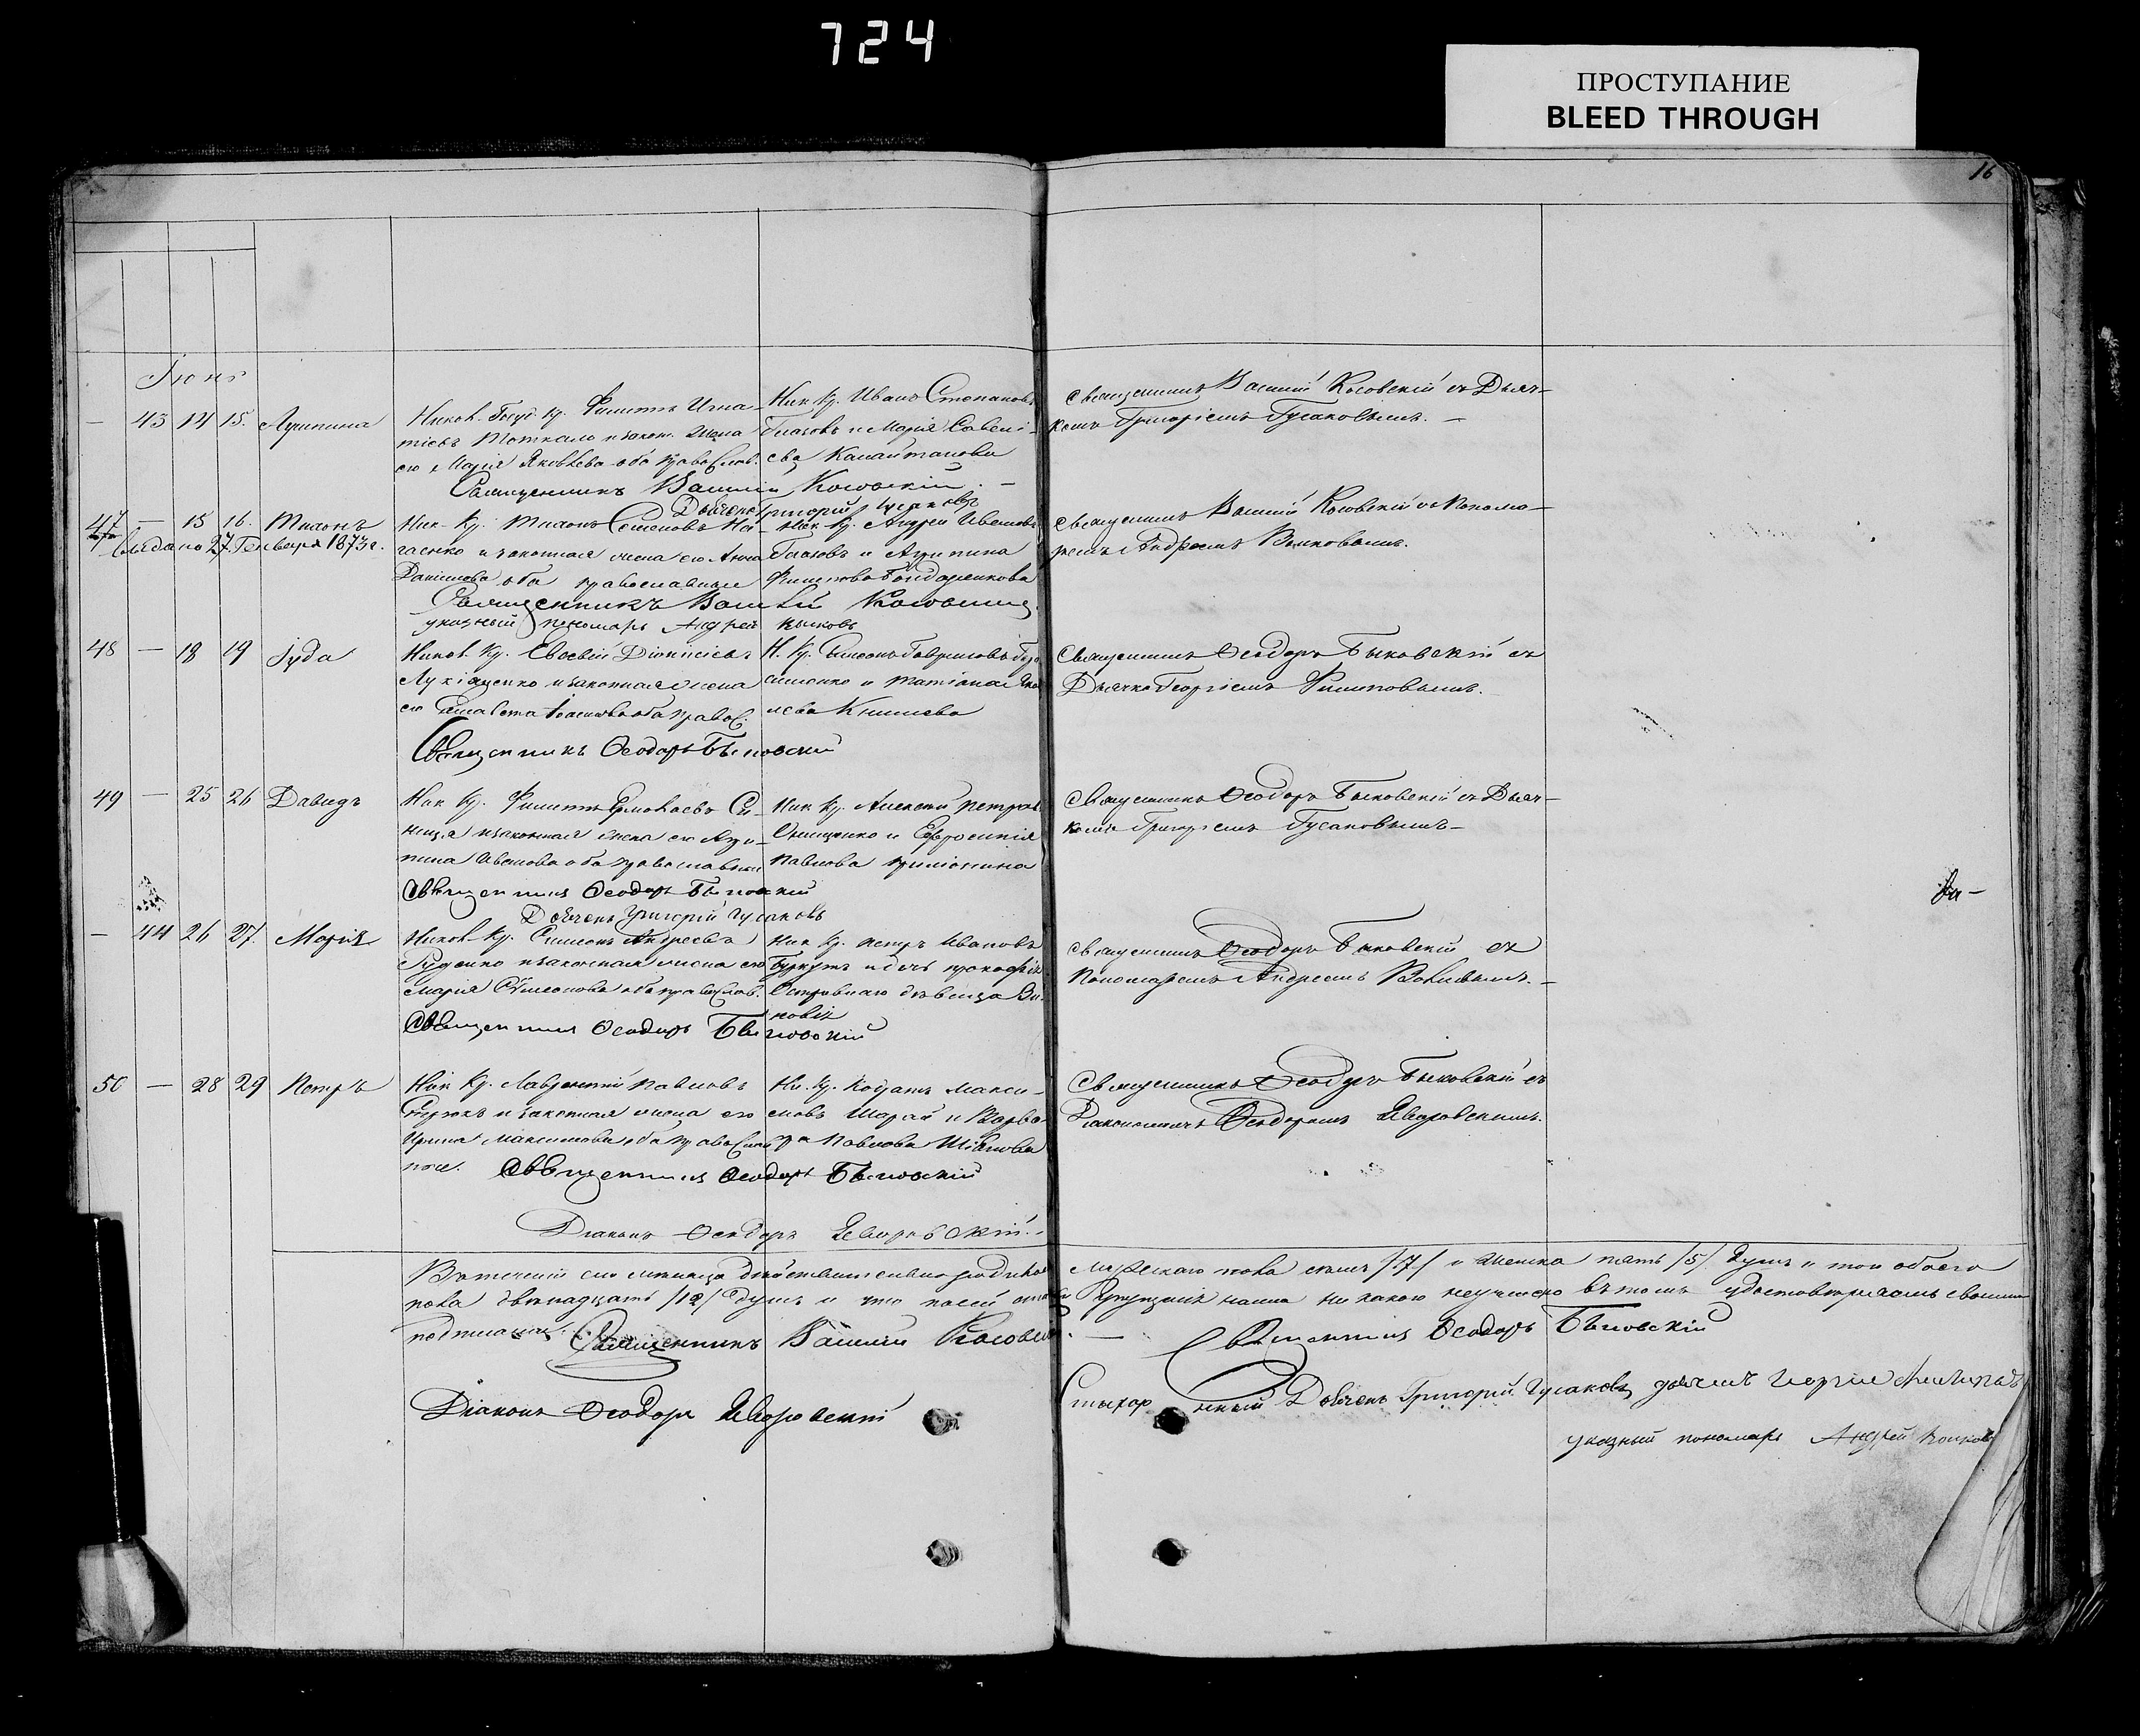 724
ПРОСТУПАНИЕ
BLEED THROUGH
16
Іюнь
— 43 14 15. Агрипина
Ников. Госуд. кр. Филиппъ Игна-
тіевъ законн. жена
его Марія Яковлева оба правослов.
Ник. Кр. Иванъ Степановъ
Гласовъ и Марія Савелі-
ева
Священникъ Василій Косовскій съ Дьяч-
комъ Григоріемъ Гусаковымъ. —
Священникъ Василій Косовскій. —
Дьячекъ Григорій Гусаковъ
47 — 15 16. Тихонъ
27. Генваря 1873 г.
Ник. Кр. Тихонъ Семеновъ На-
гаенко и законная жена его Анна
Данилова оба православные
Ник. Кр. Андрей Ивановъ
Гласовъ и Агрипина
Филипова Бондаренкова
Священникъ Василій Косовскій съ Понома-
ремъ Андреемъ Волковымъ.
Священникъ Василій Косовскій
указный пономарь Андрей Волковъ
48 — 18 19 Іуда
Ников. Кр. Евсевій Діонисіевъ
Лукіяненко и законная жена
его Елисавета оба правос.
Н. Кр. Симеонъ Гавриловъ
и Татіана
Священникъ Ѳеодоръ Быковскій съ
Дьячкомъ Георгіемъ Филиповымъ.
Священникъ Ѳеодоръ Быковскій
49 — 25 26 Давидъ
Ник. Кр. Филиппъ Ермолаевъ Си-
ница и законная жена его Агри-
пина Иванова оба православные
Ник. Кр. Алексей Петровъ
Онищенко и Евфросинія
Павлова
Священникъ Ѳеодоръ Быковскій съ Дьяч-
комъ Григоріемъ Гусаковымъ —
Священникъ Ѳеодоръ Быковскій
Дьячекъ Григорій Гусаковъ
— 44 26 27. Марія
Ников. Кр. Симеонъ Андреевъ
Руденко и законная жена его
Марія Симеонова оба правослов.
Ник. Кр. Петръ Ивановъ
Буркутъ и дочь Прокофія
Островнаго дѣвица
Священникъ Ѳеодоръ Быковскій съ
Пономаремъ Андреемъ Волковымъ. —
Священникъ Ѳеодоръ Быковскій
50 — 28 29 Петръ
Ник. Кр. Лаврентій Павловъ
и законная жена его
Ирина Максимова оба правослов
ные.
Ни. Кр. Кодратъ Макси-
мовъ Шарай и Варва-
ра Павлова
Священникъ Ѳеодоръ Быковскій съ
Діакономъ Ѳеодоромъ Яворовскимъ.
Священникъ Ѳеодоръ Быковскій
Діаконъ Ѳеодоръ Яворовскій. —
Въ теченіи сего мѣсяца дѣйствительно родилось мужескаго пола семь /7/ и женска пять /5/ душъ и того обоего
пола двѣнадцать /12/ душъ и что нами никакого неучтено въ томъ удостовѣряемъ своими
подписами. Священникъ Василій Косовскій. — Священникъ Ѳеодоръ Быковскій
Діаконъ Ѳеодоръ Яворовскій
Стихарный Дьячекъ Григорій Гусаковъ дьячекъ Георгій Филиповъ
указный пономарь Андрей Волковъ